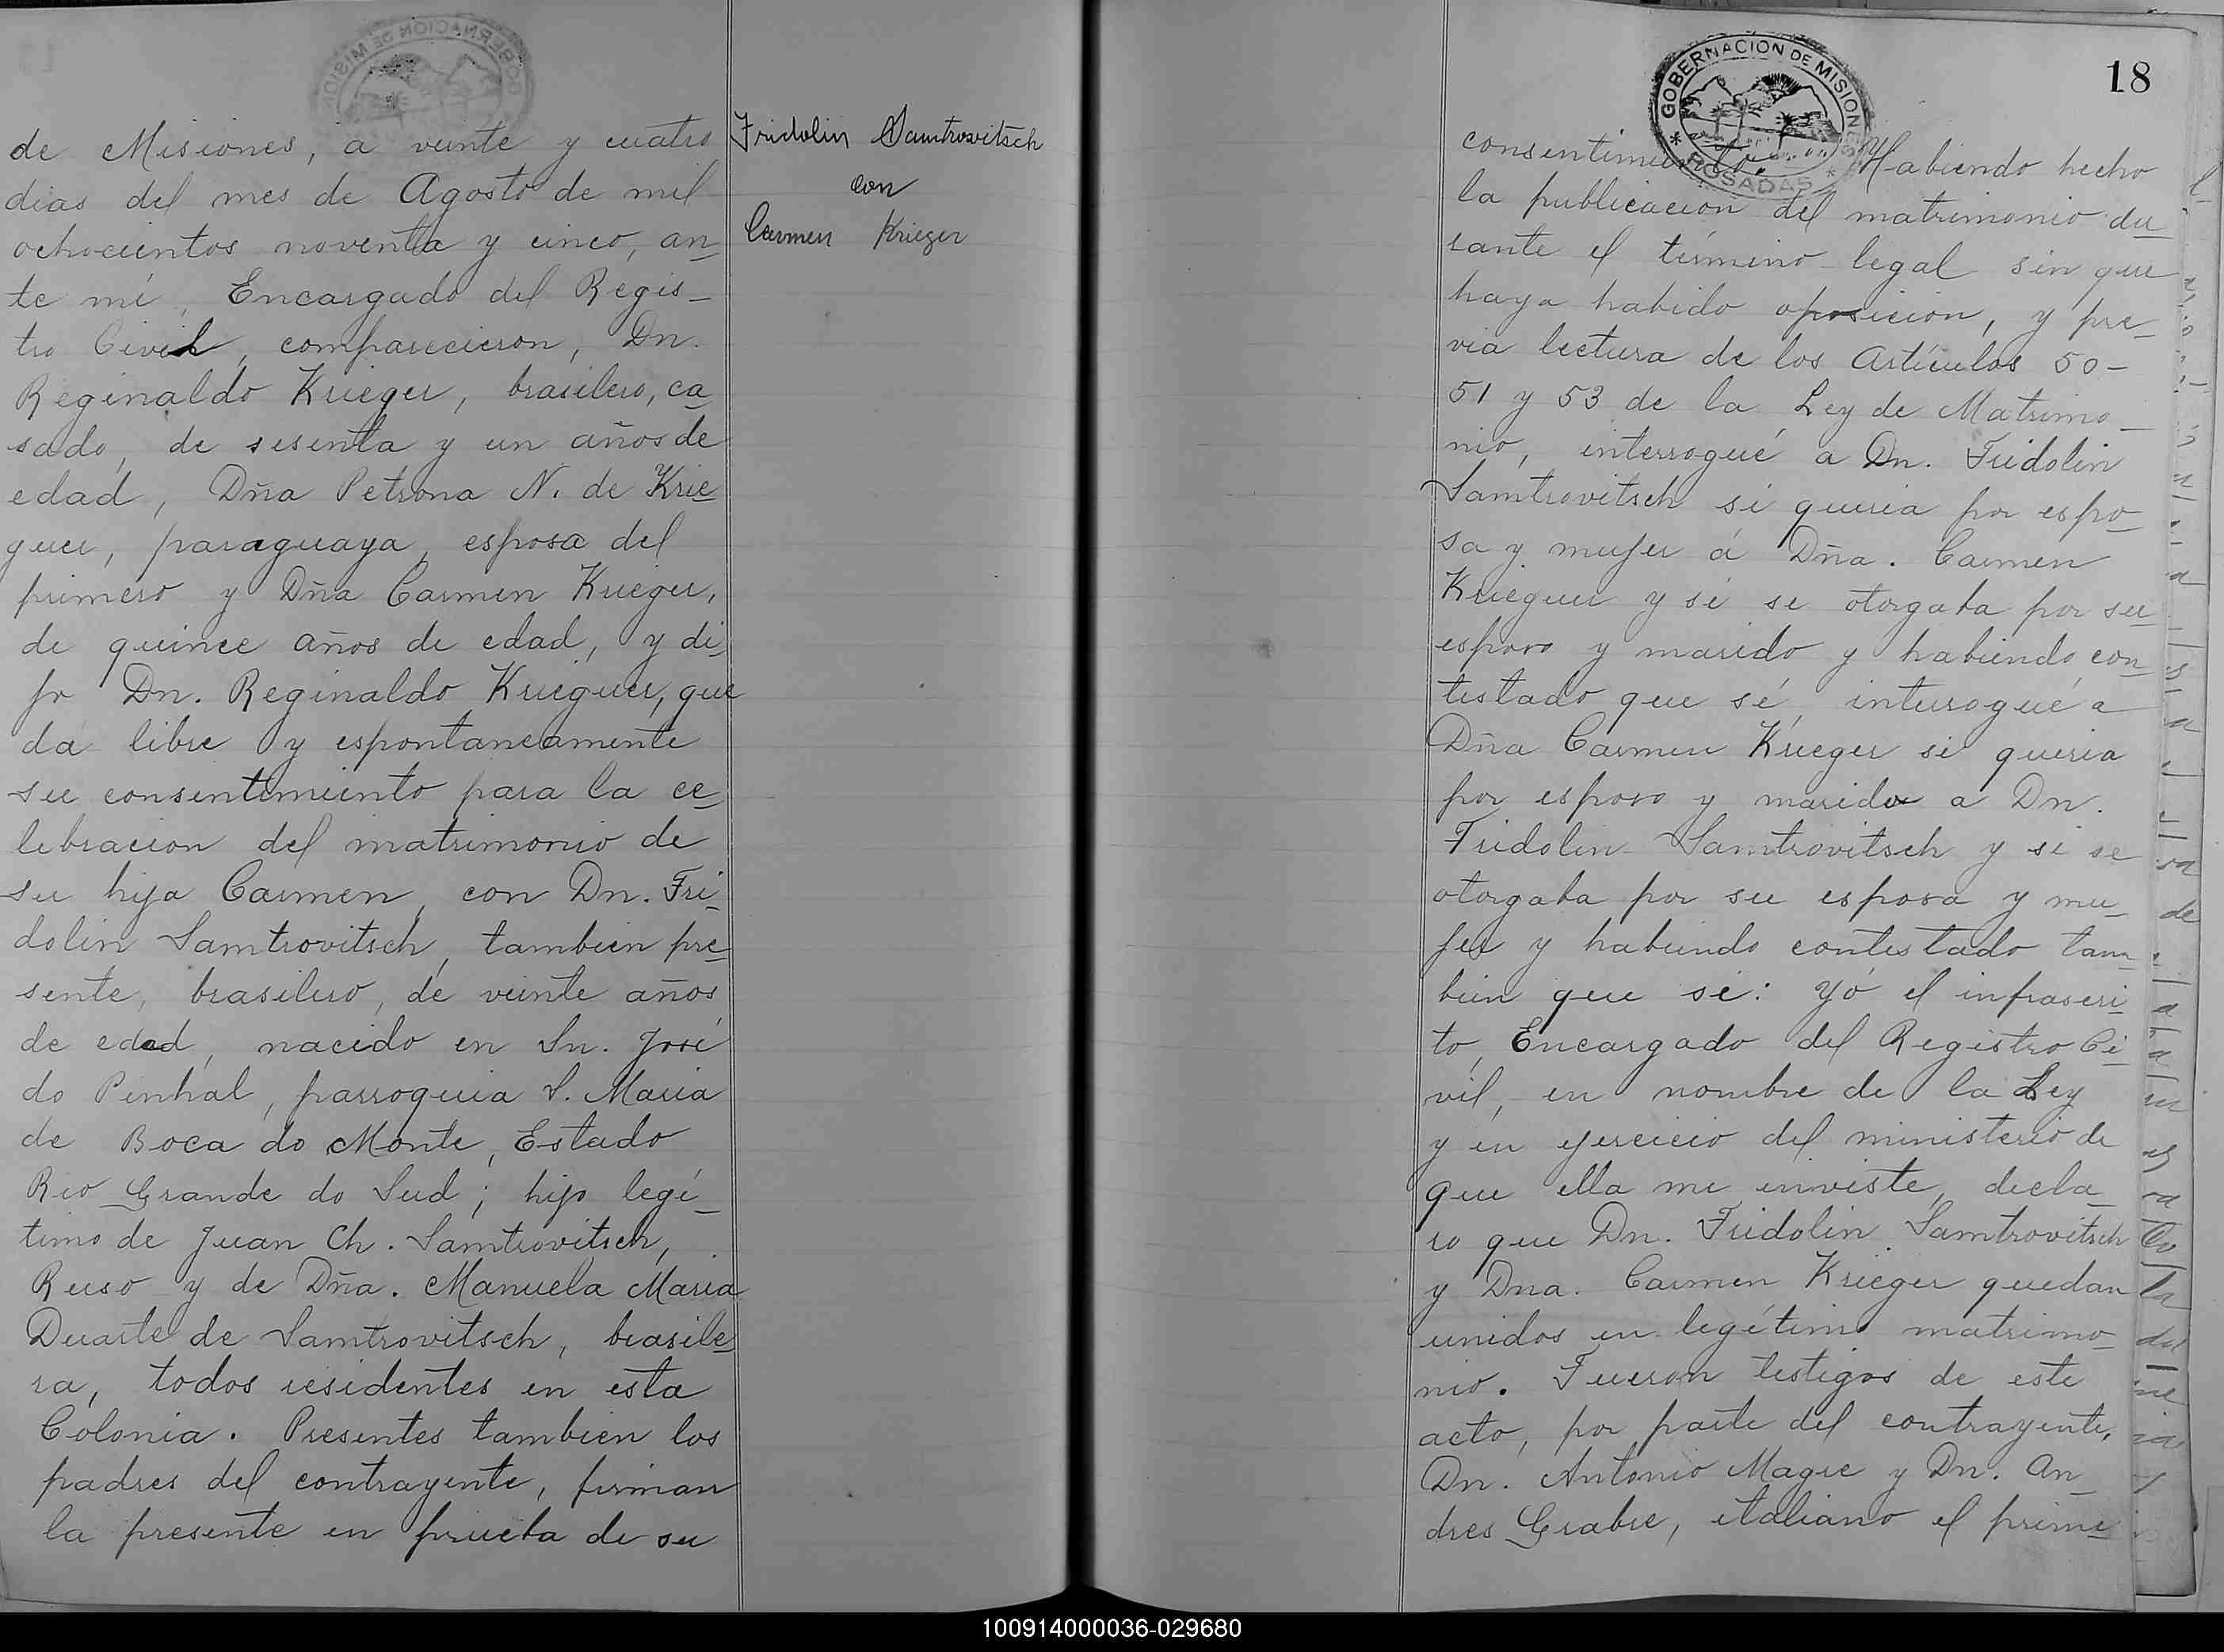 de Misiones, a veinte y cuatro
dias del mes de Agosto de mil
ochocientos noventa y cinco, an_
te mí, Encargado del Regis_
tro Civil, comparecieron, Dn.
Reginaldo Krieger, brasilero, ca_
sado, de sesenta y un años de
edad, Dña Petrona N. de Krie_
guer, paraguaya, esposa del
primero y Dña Carmen Krieger,
de quince años de edad, y di_
jo Dn. Reginaldo Krieguer, que
dá libre y espontaneamente
su consentimiento para la ce_
lebracion del matrimonio de
su hija Carmen, con Dn. Fri_
dolin Samtrovitsch, tambien pre_
sente, brasilero, de veinte años
de edad, nacido en Sn. José
do Pinhal, parroquia S. Maria
de Boca do Monte, Estado
Rio Grande do Sud; hijo legí_
timo de Juan Ch. Samtrovitsch,
Ruso y de Dña. Manuela Maria
Duarte de Samtrovitsch, brasile_
ra, todos residentes en esta
Colonia. Presentes tambien los
padres del contrayente, firman
la presente en prueba de su
Fridolin Samtrowitsch
con
Carmen Krieger
GOBERNACION DE MISIONES
* POSADAS *
18
consentimiento. Habiendo hecho
la publicacion del matrimonio du_
rante el término legal sin que
haya habido oposicion, y pre_
via lectura de los Artículos 50-
51 y 53 de la Ley de Matrimo_
nio, interrogué a Dn. Fridolin
Samtrovitsch si queria por espo_
sa y mujer á Dña. Carmen
Krieguer y si se otorgaba por su
esposo y marido y habiendo con_
testado que sí, interrogué a
Dña Carmen Krieger si queria
por esposo y marido a Dn.
Fridolin Samtrovitsch y si se
otorgaba por su esposa y mu_
jer y habiendo contestado tam_
bien que sí: Yó el infrascri_
to, Encargado del Registro Ci_
vil, en nombre de la Ley
y en ejercicio del ministerio de
que ella me inviste, decla_
ro que Dn. Fridolin Samtrovitsch
y Dna. Carmen Krieger quedan
unidos en legétimo matrimo_
nio. Fueron testigos de este
acto, por parte del contrayente,
Dn. Antonio Magre y Dn. An_
dres Grabre, italiano el prime_
100914000036-029680